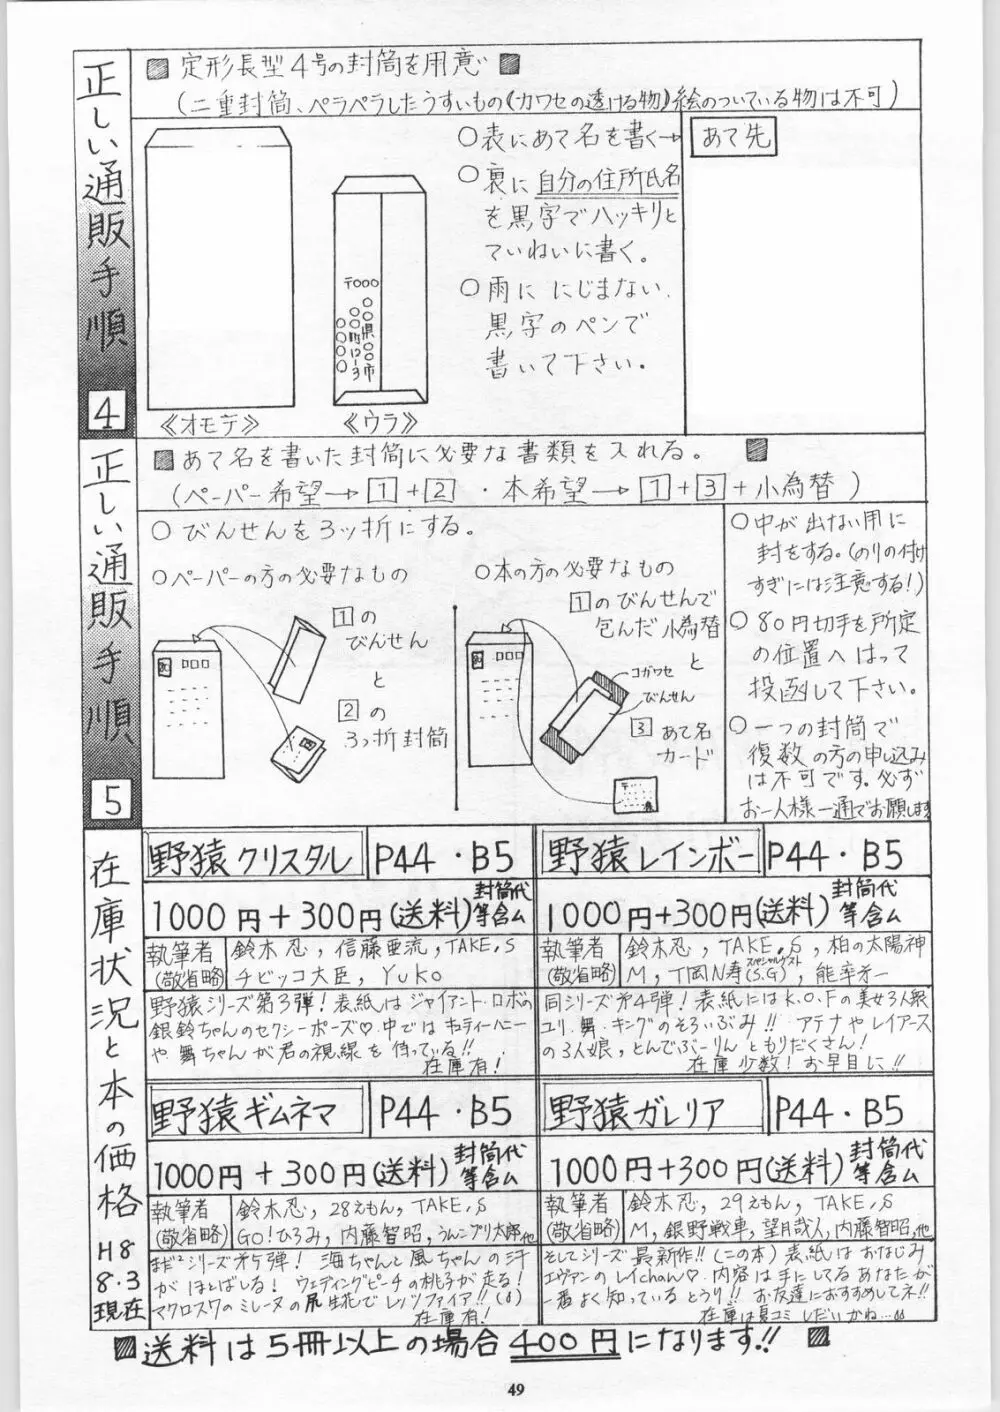 正しい通販手順 4
■ 定形長型4号の封筒を用意 ■
(二重封筒、ペラペラしたうすいもの《カワセの透ける物》絵のついている物は不可)
《オモテ》
〒○○○
○○県○○市
○○○○町○-3
《ウラ》
○表にあて名を書く→
○裏に自分の住所氏名
を黒字でハッキリと
ていねいに書く。
○雨に にじまない
黒字のペンで
書いて下さい。
あて先
正しい通販手順 5
■あて名を書いた封筒に必要な書類を入れる。 ■
(ペーパー希望→1+2・本希望→1+3+小為替)
○びんせんを3ッ折にする。
○ペーパーの方の必要なもの
1の
びんせん
と
2の
3っ折封筒
○本の方の必要なもの
1のびんせんで
包んだ小為替
と
コガワセ
びんせん
3あて名
カード
○中が出ない用に
封をする。(のりの付け
すぎには注意する!)
○80円切手を所定
の位置へはって
投函して下さい。
○一つの封筒で
複数の方の申し込み
は不可です。必ず
お一人様一通でお願します
在庫状況と本の価格 H8 8.3 現在
野猿クリスタル P44・B5
1000円+300円(送料)封筒代等含ム
執筆者(敬省略)
鈴木忍,信藤亜流,TAKE.S
チビッコ大臣,YUKO
野猿シリーズ第3弾!表紙はジャイアント・ロボの
銀鈴ちゃんのセクシーポーズ♡中ではキューティーハニー
や舞ちゃんが君の視線を待っている!!
在庫有!
野猿レインボー P44・B5
1000円+300円(送料)封筒代等含ム
執筆者(敬省略)
鈴木忍,TAKE.S,柏の太陽神
M,T岡N寿(S.G)スペシャルゲスト,能卒才一
同シリーズ才4弾!表紙にはK.O.Fの美女3人組
ユリ・舞・キングのそろいぶみ!! アテナやレイアース
の3人娘,とんでぶーりんともりだくさん!
在庫少数!お早目に!!
野猿ギムネマ P44・B5
1000円+300円(送料)封筒代等含ム
執筆者(敬省略)
鈴木忍,28えもん,TAKE.S
GO!ひろみ,内藤智昭,うんこプリ太郎,他
まだシリーズ才5弾! 海ちゃんと風ちゃんの汗
がほとばしる! ウェディングピーチの桃子が走る!
マクロス7のミレーヌの尻生花でレッツファイア!!
在庫有!
野猿ガレリア P44・B5
1000円+300円(送料)封筒代等含ム
執筆者(敬省略)
鈴木忍,29えもん,TAKE.S
M,銀野戦車,望月哉人,内藤智昭,他
そしてシリーズ最新作!!(この本)表紙はおなじみ
エヴァンのレイchan♡内容は手にしてるあなたが
一番よく知っているとうり!! お友達におすすめしてネ!!
在庫は夏コミしだいかね…
■送料は5冊以上の場合400円になります!! ■
49